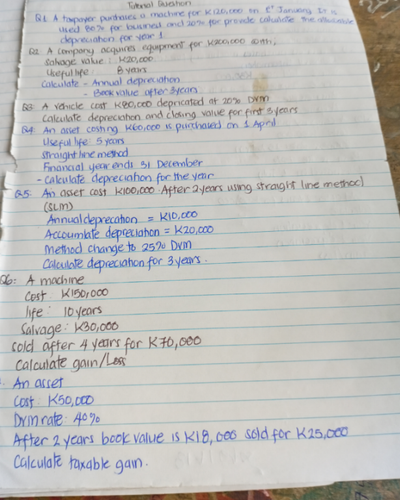 Tutorial Question
Q1. A taxpayer purchases a machine for K120,000 on 1st January. It is
used 80% for business and 20% for private calculate the allowable
depreciation for year 1.
Q2. A company acquires equipment for K200,000 with:
Salvage value : K20,000
Useful life : 8 years
Calculate - Annual depreciation
- Book value after 3 years
Q3: A vehicle cost K80,000 depricated at 20% Dvm
Calculate depreciation and closing value for first 3 years
Q4: An asset costing K60,000 is purchased on 1 April
Useful life: 5 years
straight line method
Financial year ends 31 December
- Calculate depreciation for the year
Q5: An asset cost K100,000. After 2 years using straight line method
(SLM)
Annual deprecation = K10,000
Accoumlate depreciation = K20,000
Method change to 25% Dvm
Calculate depreciation for 3 years.
Q6: A machine
Cost K150,000
life : 10 years
Salvage: K30,000
sold after 4 years for K70,000
Calculate gain/Loss
An asset
Cost: K50,000
Dvm rate: 40%
After 2 years book value is K18,000 sold for K25,000
Calculate taxable gain.